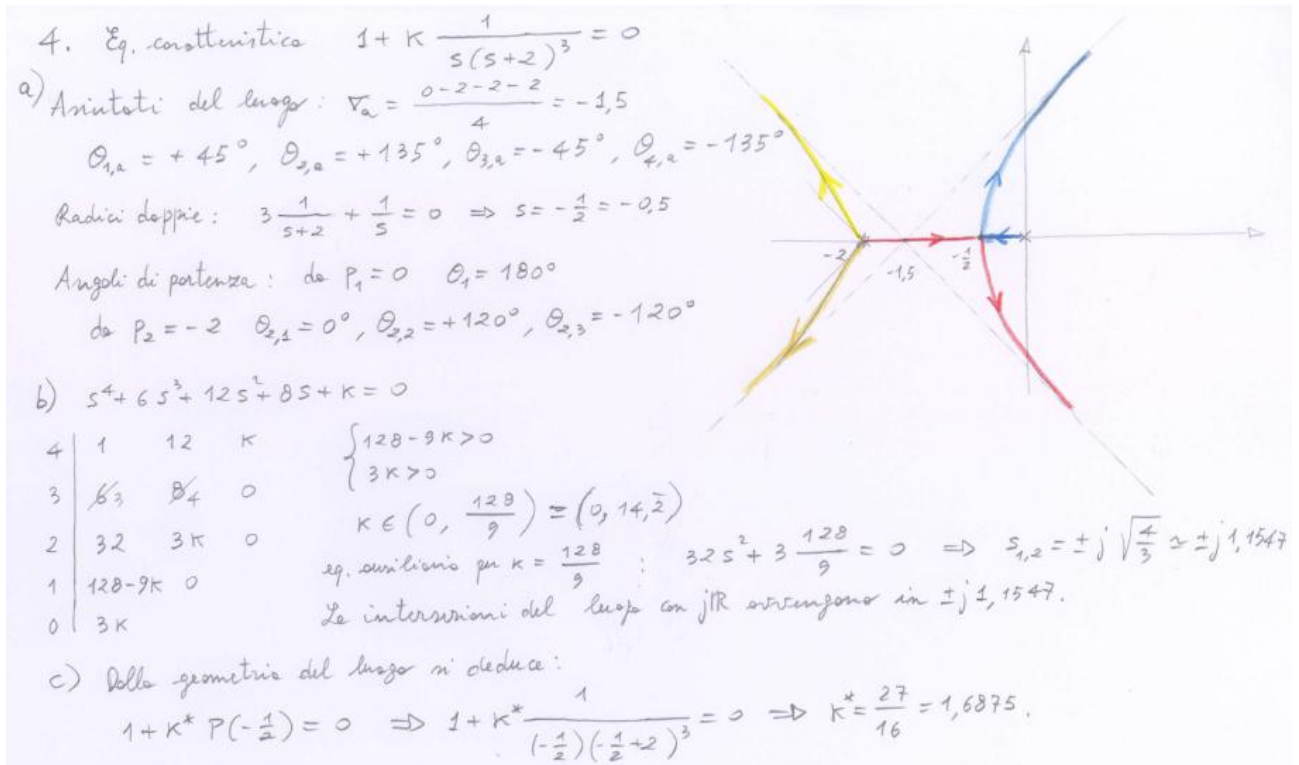 4. Eq. caratteristica 1 + K \frac{1}{s(s+2)^3} = 0
a) Asintoti del luogo : σ_a = \frac{0-2-2-2}{4} = -1,5
θ_{1,a} = +45°, θ_{2,a} = +135°, θ_{3,a} = -45°, θ_{4,a} = -135°
Radici doppie : 3 \frac{1}{s+2} + \frac{1}{s} = 0 ⇒ s = -\frac{1}{2} = -0,5
Angoli di partenza : da p_1 = 0 θ_1 = 180°
da p_2 = -2 θ_{2,1} = 0°, θ_{2,2} = +120°, θ_{2,3} = -120°
-2 -1,5 -\frac{1}{2}
b) s^4 + 6s^3 + 12s^2 + 8s + K = 0
4 | 1 12 K
3 | 6 3 8 4 0
2 | 32 3K 0
1 | 128-9K 0
0 | 3K
{ 128-9K > 0
3K > 0
K ∈ (0, \frac{128}{9}) = (0, 14,\overline{2})
eq. ausiliaria per K = \frac{128}{9} : 32s^2 + 3 \frac{128}{9} = 0 ⇒ s_{1,2} = ± j \sqrt{\frac{4}{3}} ≃ ± j 1,1547
Le intersezioni del luogo con jℝ avvengono in ± j 1,1547.
c) Dalla geometria del luogo si deduce :
1 + K* P(-\frac{1}{2}) = 0 ⇒ 1 + K* \frac{1}{(-\frac{1}{2})(-\frac{1}{2}+2)^3} = 0 ⇒ K* = \frac{27}{16} = 1,6875.